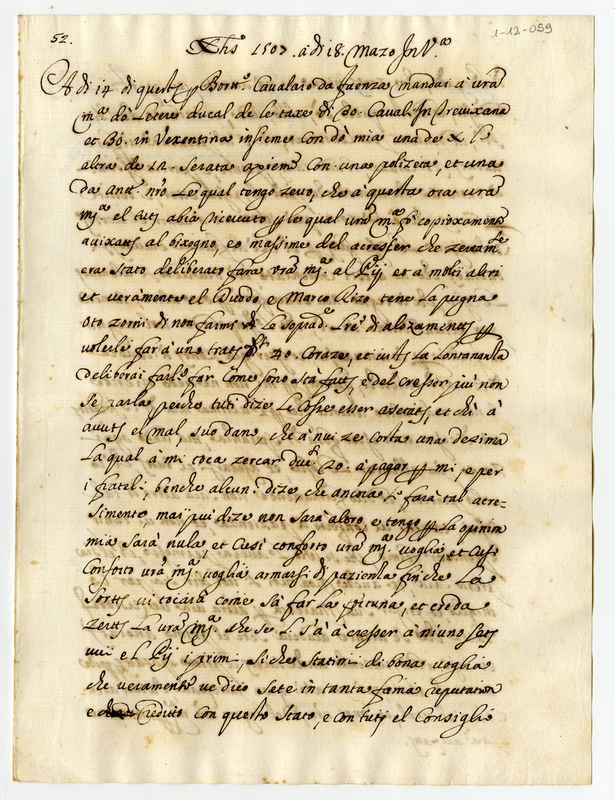 52.
1-12-059
Jhs 1507. à di 18. Mazo In V.ª
A di 14 di questo Bort.º Cavalaro da faenza, mandai à vrã
m.ª do Letere ducal de le taxe di 80. Caval. In trevixana
et 80. in Vexentina insieme con dò mia una de
altra de 12. Serata apieno con una polizeta, et una
da ant.º nrõ Le qual tengo zerto, che à questa ora vrã
m.ª el tutto abia riceuto le qual vrã m.ª copioxamente
avixato al bixogno, e massime del cresser che
era stato deliberato fara vrã m.ª el et à molti altri
et veramente el e Marco Rizo tene La pugna
oto zorni di non farmi Le soprad.e Lrẽ di alozamenti
volerle far à uno trato 40. Coraze, et La
deliberai farle far come sono stà fatte, e del cresser più non
se parla, perche tuti dize Le Cosse esser asetate, et chi à
avuto el mal, suo dano, che à nui ze costa una dezima
La qual à mi toca zercar duc. 20. à pagar mi, e per
i frateli, benche alcun dize, che ancora se farà tal acre=
simento, mai più dize non sarà altro, e tengo La opinion
mia sarà nula, et Cusì conforto vrã m.ª voglia, et Cusì
Conforto vrã m.ª voglia armarsi di pazientia finche La
sorte vi tocarà come sà far La fortuna, et creda
zerto La vrã m.ª che se si à à cresser à niuno sete
vui e el i primi, siche state di bona voglia
che veramente ve dico sete in tanta fama reputation
e Credito con questo stato, e con tuto el Consiglio